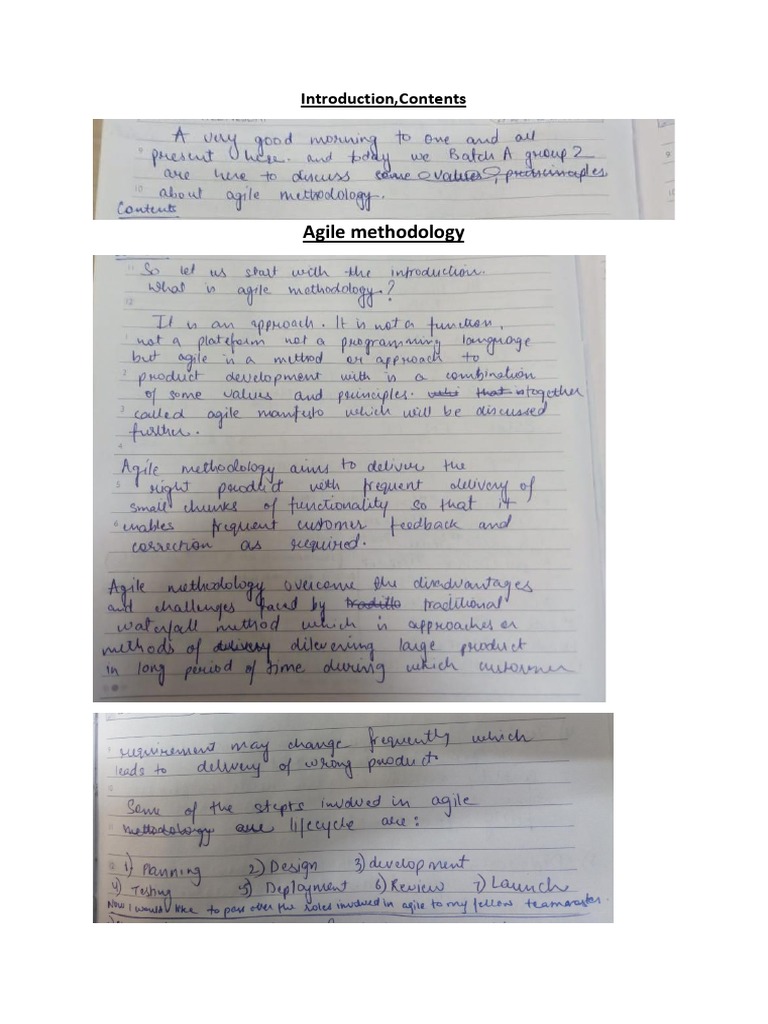 Introduction,Contents
A very good morning to one and all
present here. and today we Batch A group 2
are here to discuss some values, principles
about agile methodology.
Contents
Agile methodology
So let us start with the introduction.
What is agile methodology?
It is an approach. It is not a function,
not a plateform not a programming language
but agile is a method or approach to
product development with is a combination
of some values and principles. that is together
called agile manfuto which will be discussed
further.
Agile methodology aims to deliver the
right product with frequent delivery of
small chunks of functionality so that it
enables frequent customer feedback and
correction as required.
Agile methodology overcome the disadvantages
and challenges faced by traditio traditional
waterfall method which is approaches or
methods of delivery dilevering large product
in long period of time during which customer
requirement may change frequently which
leads to delivery of wrong product
Some of the stepts involved in agile
methodology are lifecycle are:
1) Planning 2) Design 3) development
4) Testing 5) Deployment 6) Review 7) Launch
Now I would like to pass over the roles involved in agile to my fellow teammates.